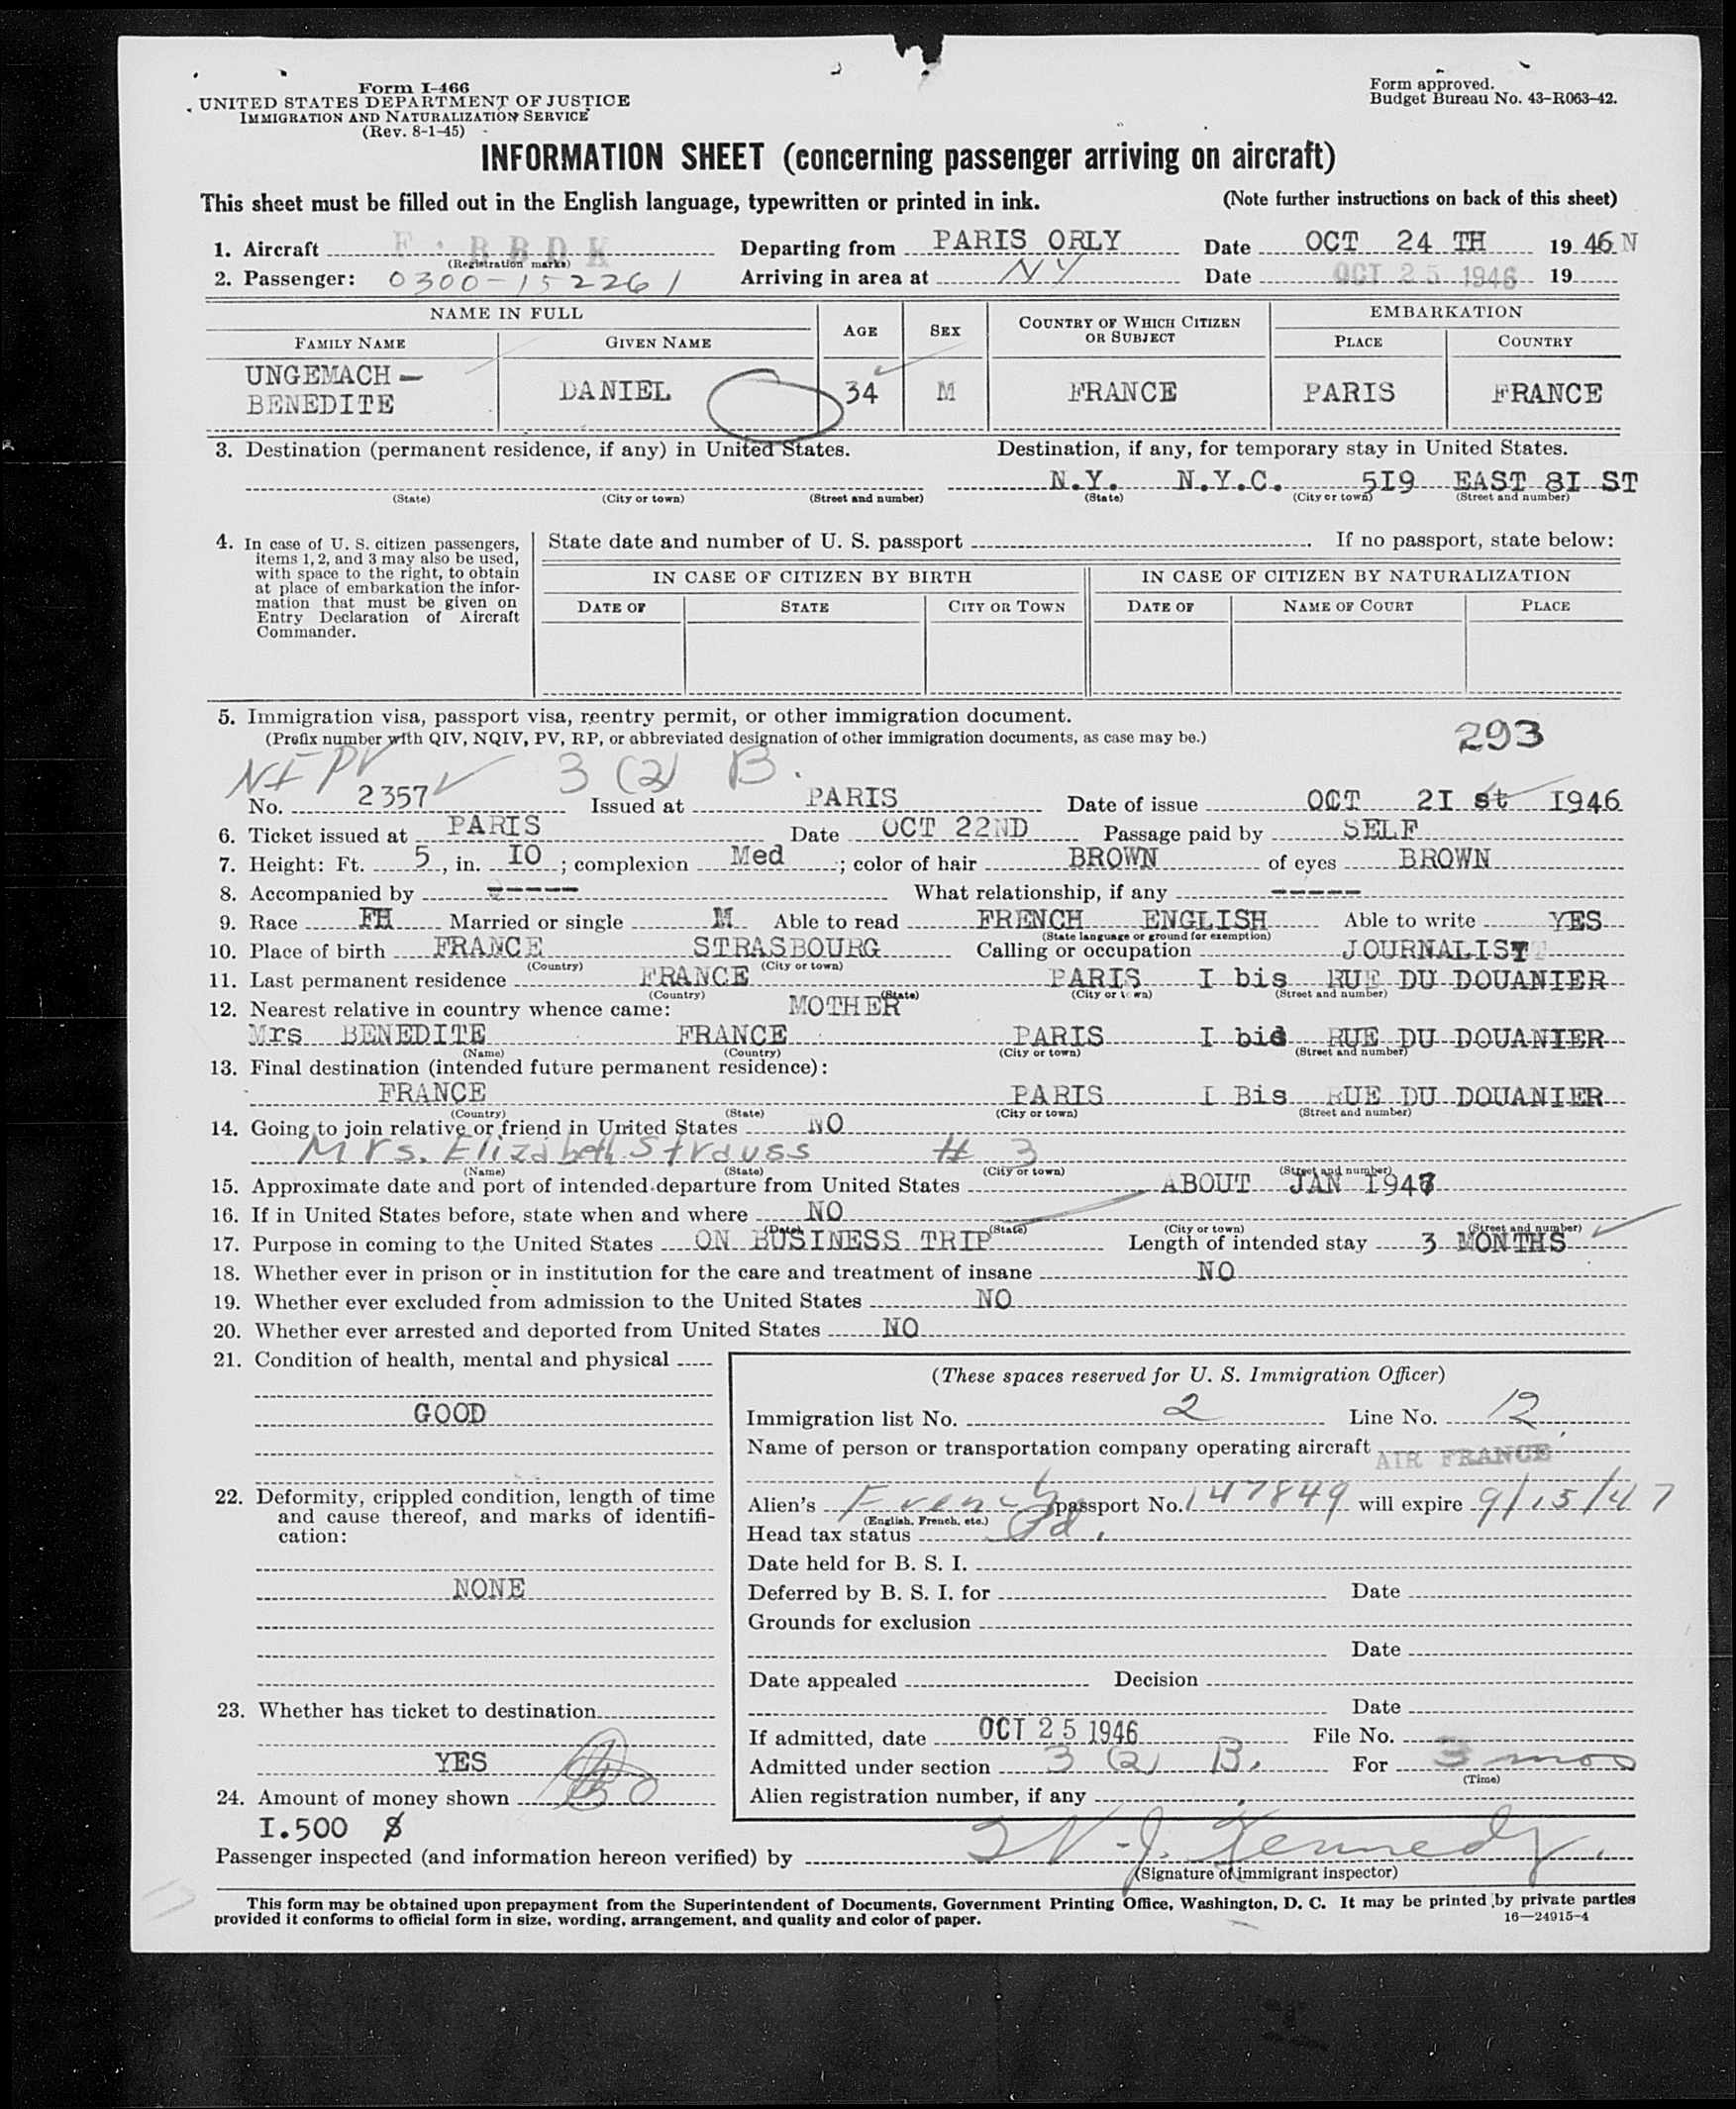 Form I-466
UNITED STATES DEPARTMENT OF JUSTICE
IMMIGRATION AND NATURALIZATION SERVICE
(Rev. 8-1-45)
Form approved.
Budget Bureau No. 43-R063-42.
INFORMATION SHEET (concerning passenger arriving on aircraft)
This sheet must be filled out in the English language, typewritten or printed in ink. (Note further instructions on back of this sheet)
1. Aircraft F. BBDK Departing from PARIS ORLY Date OCT 24 TH 19 46 N
(Registration marks)
2. Passenger: 0300-152261 Arriving in area at NY Date OCT 25 1946 19
NAME IN FULL AGE SEX COUNTRY OF WHICH CITIZEN OR SUBJECT EMBARKATION
FAMILY NAME GIVEN NAME PLACE COUNTRY
UNGEMACH-
BENEDITE DANIEL 34 M FRANCE PARIS FRANCE
3. Destination (permanent residence, if any) in United States. Destination, if any, for temporary stay in United States.
N.Y. N.Y.C. 5I9 EAST 8I ST
(State) (City or town) (Street and number) (State) (City or town) (Street and number)
4. In case of U. S. citizen passengers,
items 1, 2, and 3 may also be used,
with space to the right, to obtain
at place of embarkation the infor-
mation that must be given on
Entry Declaration of Aircraft
Commander.
State date and number of U. S. passport If no passport, state below:
IN CASE OF CITIZEN BY BIRTH IN CASE OF CITIZEN BY NATURALIZATION
DATE OF STATE CITY OR TOWN DATE OF NAME OF COURT PLACE
5. Immigration visa, passport visa, reentry permit, or other immigration document.
(Prefix number with QIV, NQIV, PV, RP, or abbreviated designation of other immigration documents, as case may be.) 293
NI PV 3 (2) B.
No. 2357 Issued at PARIS Date of issue OCT 2I st I946
6. Ticket issued at PARIS Date OCT 22ND Passage paid by SELF
7. Height: Ft. 5, in. IO; complexion Med; color of hair BROWN of eyes BROWN
8. Accompanied by ----- What relationship, if any -----
9. Race FH Married or single M Able to read FRENCH ENGLISH Able to write YES
(State language or ground for exemption)
10. Place of birth FRANCE STRASBOURG Calling or occupation JOURNALIST
(Country) (City or town)
11. Last permanent residence FRANCE PARIS I bis RUE DU DOUANIER
(Country) (State) (City or town) (Street and number)
12. Nearest relative in country whence came: MOTHER
Mrs BENEDITE FRANCE PARIS I bis RUE DU DOUANIER
(Name) (Country) (City or town) (Street and number)
13. Final destination (intended future permanent residence):
FRANCE PARIS I Bis RUE DU DOUANIER
(Country) (State) (City or town) (Street and number)
14. Going to join relative or friend in United States NO
Mrs. Elizabeth Strauss # 3
(Name) (State) (City or town) (Street and number)
15. Approximate date and port of intended departure from United States ABOUT JAN I947
16. If in United States before, state when and where NO
(Date) (State) (City or town) (Street and number)
17. Purpose in coming to the United States ON BUSINESS TRIP Length of intended stay 3 MONTHS
18. Whether ever in prison or in institution for the care and treatment of insane NO
19. Whether ever excluded from admission to the United States NO
20. Whether ever arrested and deported from United States NO
21. Condition of health, mental and physical
GOOD
22. Deformity, crippled condition, length of time
and cause thereof, and marks of identifi-
cation:
NONE
23. Whether has ticket to destination
YES
24. Amount of money shown
I.500 $
(These spaces reserved for U. S. Immigration Officer)
Immigration list No. 2 Line No. 12
Name of person or transportation company operating aircraft AIR FRANCE
Alien's French passport No. 147849 will expire 9/15/47
(English, French, etc.)
Head tax status Pd.
Date held for B. S. I.
Deferred by B. S. I. for Date
Grounds for exclusion
Date
Date appealed Decision
Date
If admitted, date OCT 25 1946 File No.
Admitted under section 3 (2) B. For 3 mos
(Time)
Alien registration number, if any
Passenger inspected (and information hereon verified) by W. J. Kennedy.
(Signature of immigrant inspector)
This form may be obtained upon prepayment from the Superintendent of Documents, Government Printing Office, Washington, D. C. It may be printed by private parties
provided it conforms to official form in size, wording, arrangement, and quality and color of paper. 16—24915-4